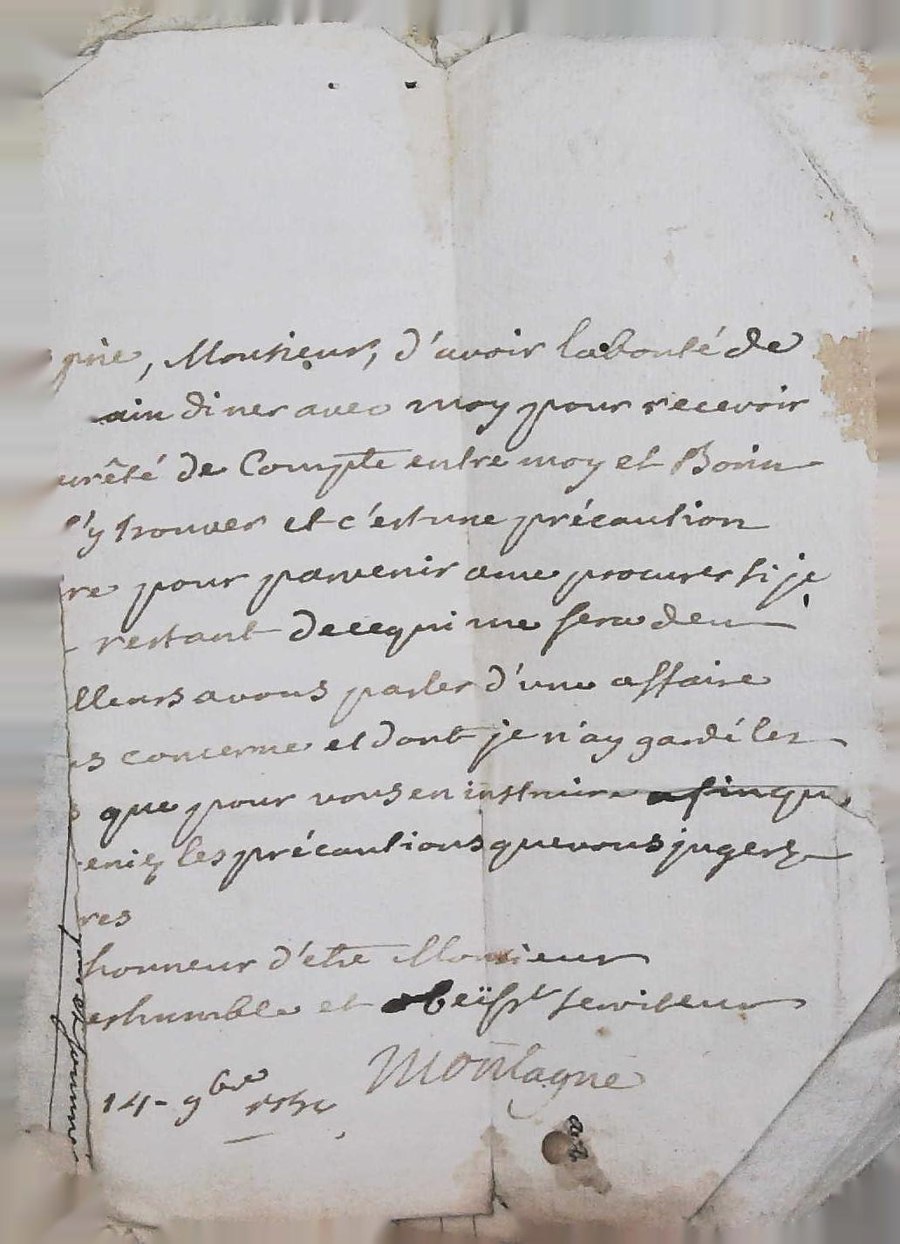 prie, Monsieur, d'avoir la bonté de
ain diner avec moy pour recevoir
urêté de Compte entre moy et Bonin
s'y trouver et c'est une précaution
re pour parvenir a me procurer si je
restant de ce qui me sera deu
lleurs a vous parler d'une affaire
es concerne et dont je n'ay gardé les
s que pour vous en instruire afin qu
eniez les précautions que vous jugerz
res
honneur d'etre Monsieur
es humble et obeïsst serviteur
Montagne
14 - 9bre